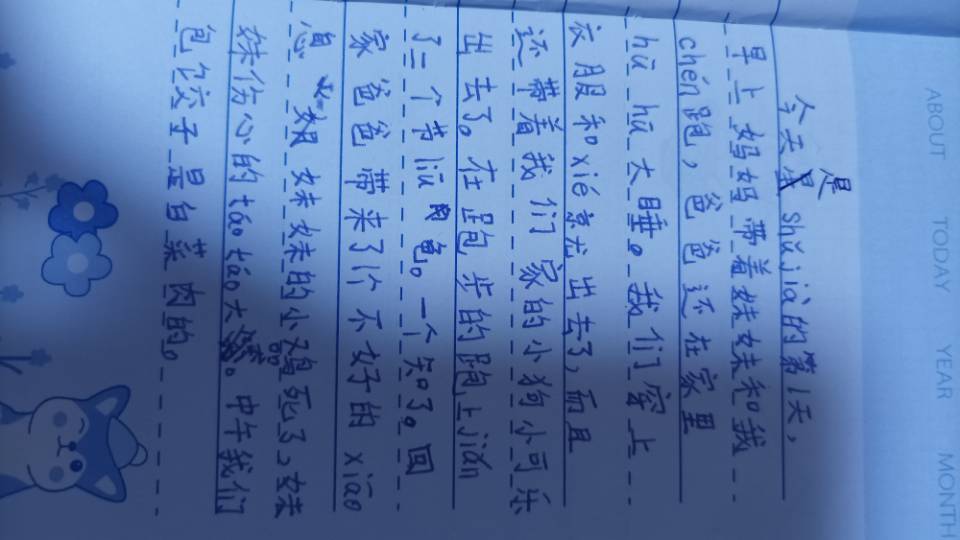 ABOUT TODAY YEAR MONTH
今天是 shǔjià的第1天,
早上妈妈带着妹妹和我
chén跑，爸爸还在家里
hū hū大睡。我们穿上
衣服和xié就出去了,而且
还带着我们家的小狗小可乐
出去了。在跑步的跑上jiǎn
了二个节liū龟。一个知了。回
家爸爸带来了1个不好的xiāo
息 妹妹的小鸡死了。妹
妹伤心的táo táo大哭。中午我们
包饺子是白菜肉的。